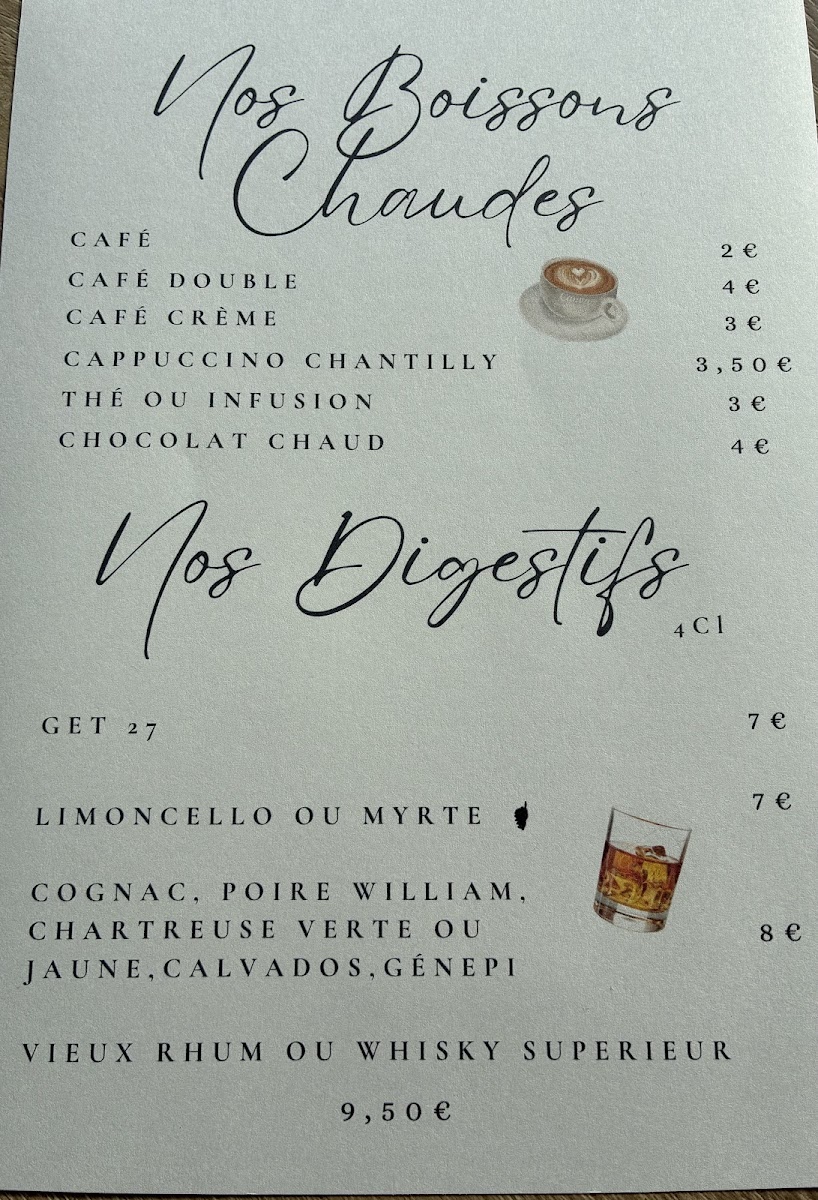 Nos Boissons
Chaudes
CAFÉ 2 €
CAFÉ DOUBLE 4 €
CAFÉ CRÈME 3 €
CAPPUCCINO CHANTILLY 3,50 €
THÉ OU INFUSION 3 €
CHOCOLAT CHAUD 4 €
Nos Digestifs
4Cl
GET 27 7 €
LIMONCELLO OU MYRTE 7 €
COGNAC, POIRE WILLIAM,
CHARTREUSE VERTE OU 8 €
JAUNE,CALVADOS,GÉNEPI
VIEUX RHUM OU WHISKY SUPERIEUR
9,50 €